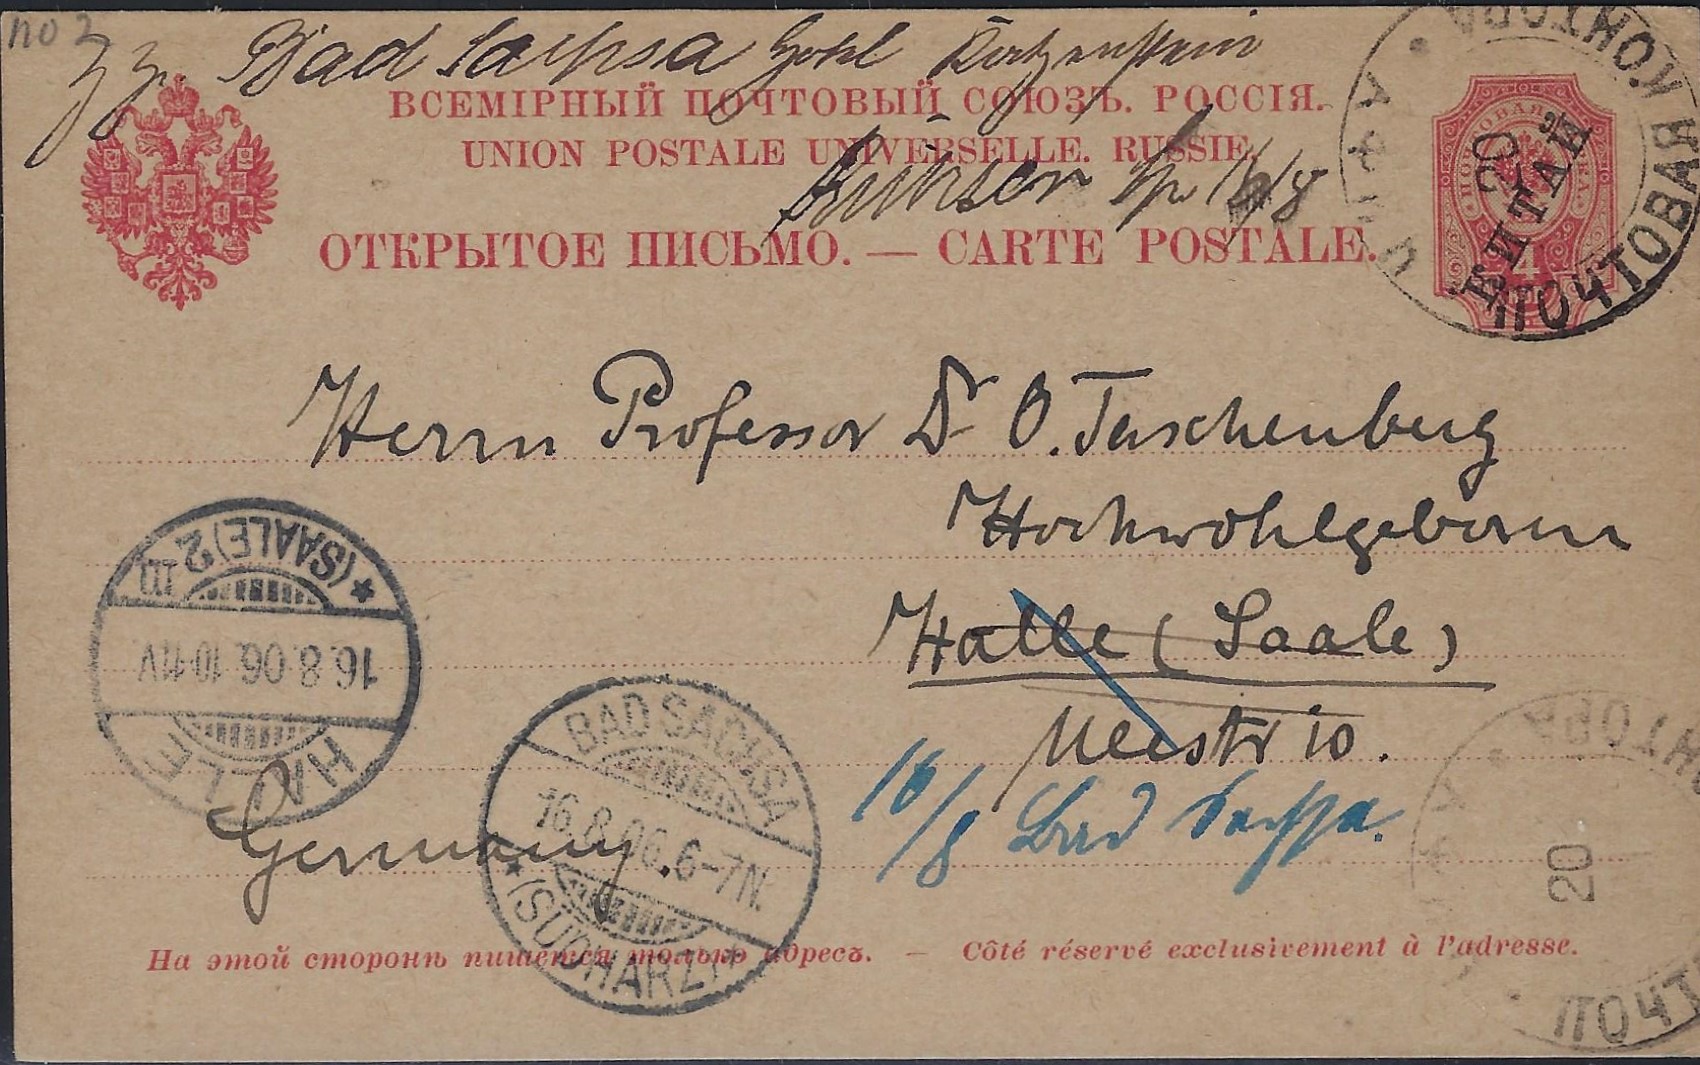 no 2
z. Zt. Bad Sachsa Hotel Katzenstein
ВСЕМІРНЫЙ ПОЧТОВЫЙ СОЮЗЪ. РОССІЯ.
UNION POSTALE UNIVERSELLE. RUSSIE.
16/8
ОТКРЫТОЕ ПИСЬМО. — CARTE POSTALE.
КИТАЙ
4
20
ПОЧТОВАЯ КОНТОРА
Herrn Professor Dr O. Taschenberg
Hochwohlgeboren
Halle (Saale)
str 10.
16/8 Bad Sachsa.
Germany.
HALLE
16.8.06. 10-11V.
* (SAALE) 2 m
BAD SACHSA
16.8.06. 6-7N.
* (SÜDHARZ) *
20
ПОЧТ
НТОРА
На этой сторонѣ пишется только адресъ. — Côté réservé exclusivement à l'adresse.